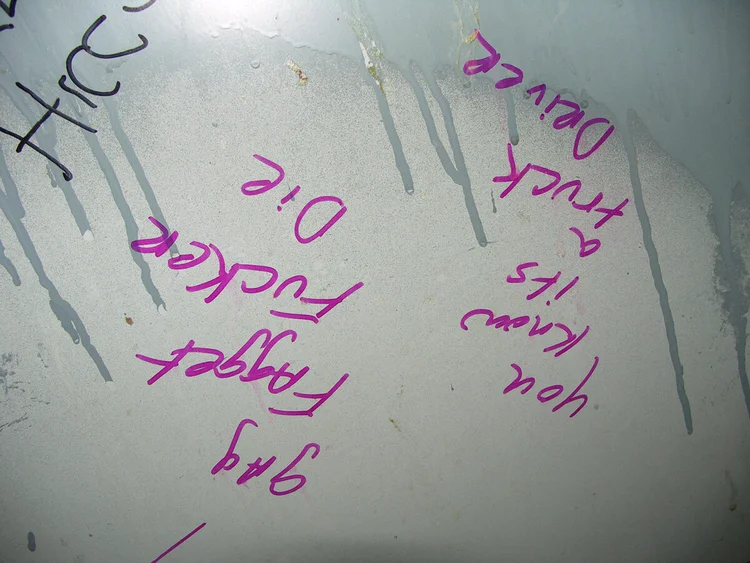 you
Know
its
a
truck
DRiveR
gAy
FAgget
FucKeR
Die